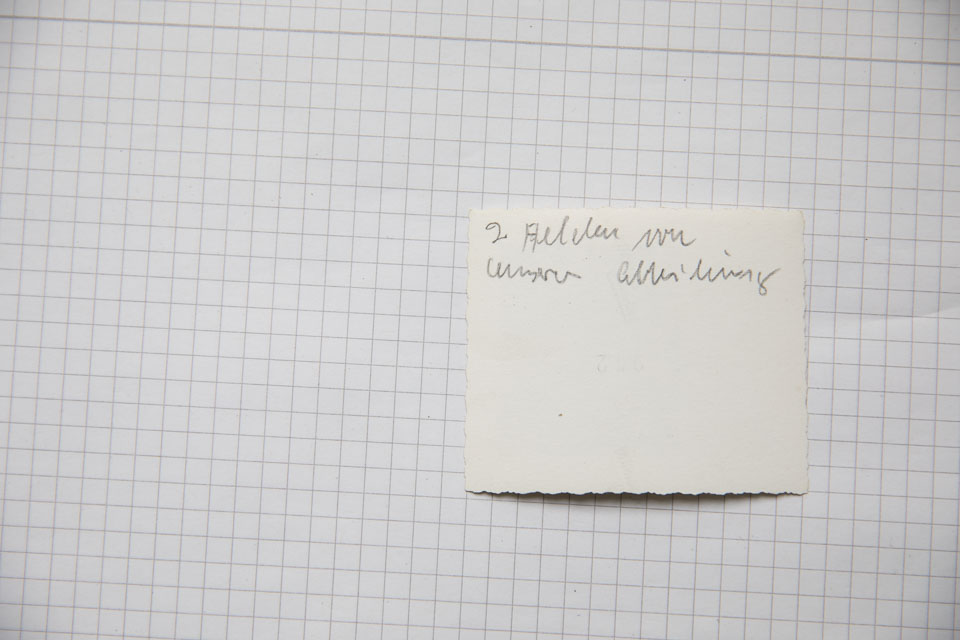 2 Helden von
unserer Abteilung